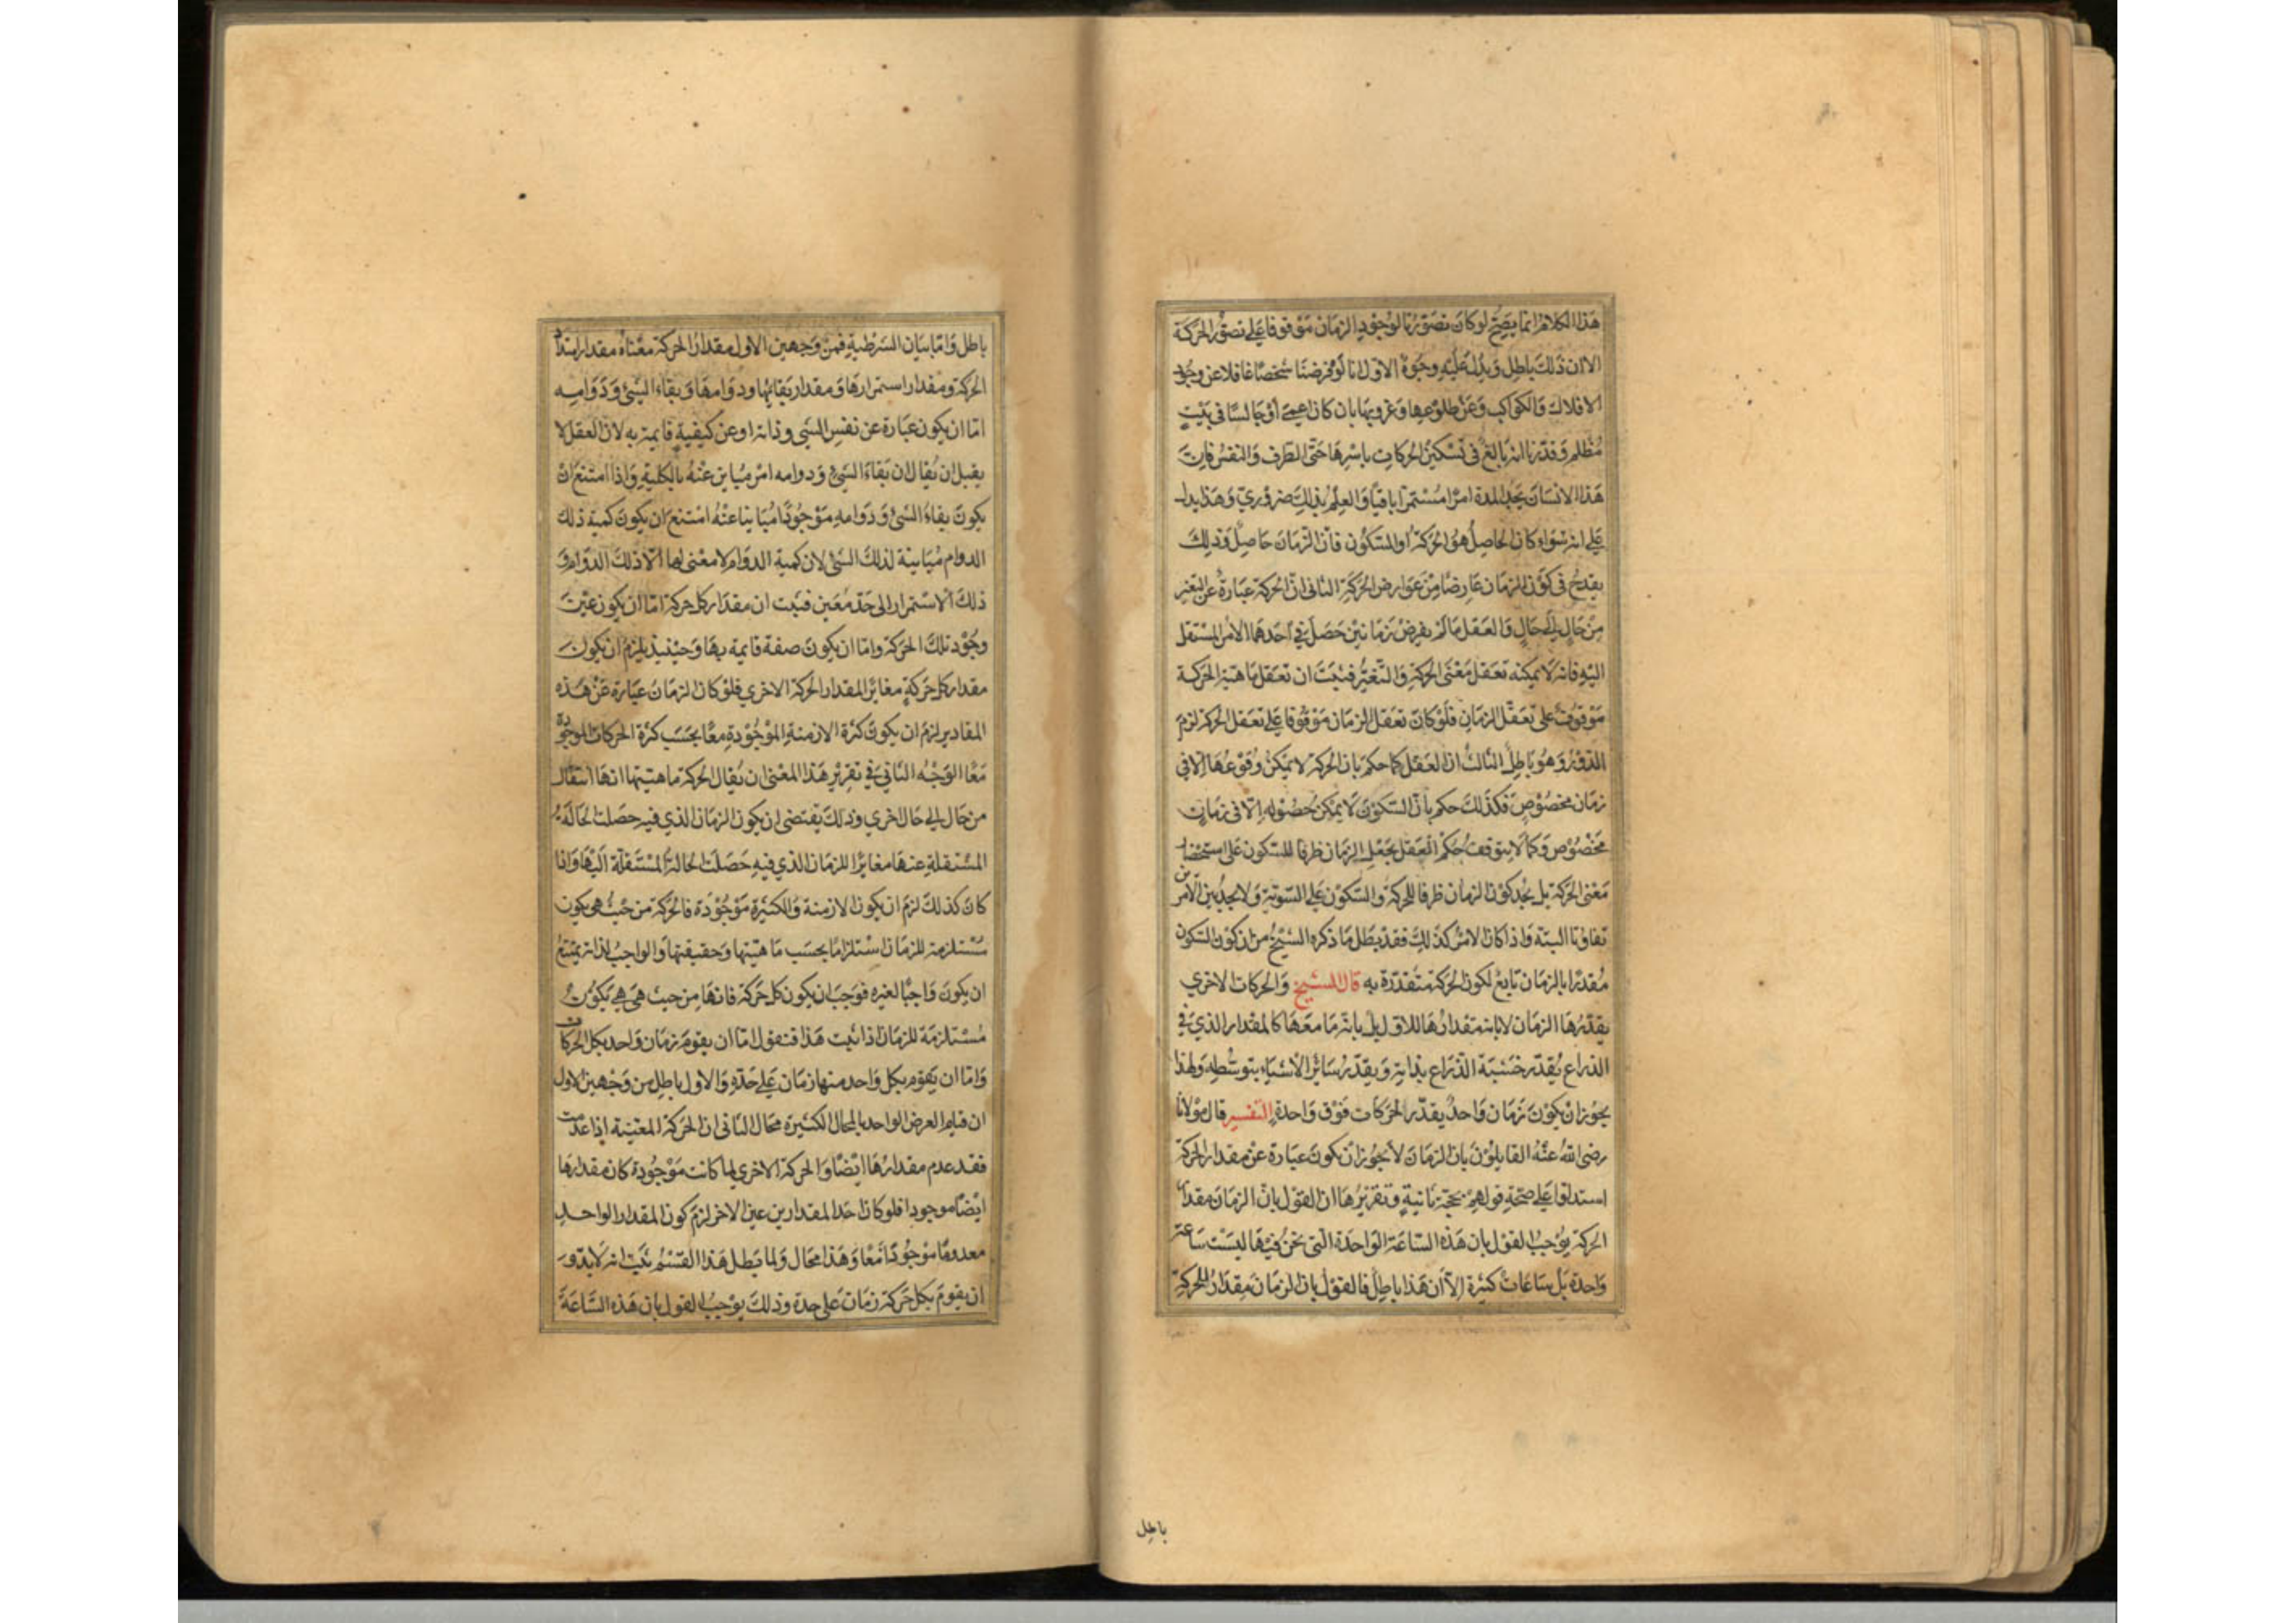 هذا الكلام انما يصح لو كان تصورنا لوجود الزمان موقوفا على تصور الحركة
الا ان ذلك باطل ويدل عليه وجوه الاول انا لو فرضنا شخصا غافلا عن وجود
الافلاك والكواكب وعن طلوعها وغروبها بان كان اعمى او جالسا في بيت
مظلم وقدرنا انه بالغ في تسكين الحركات باسرها حتى الطرف والنفس فان
هذا الانسان يجد المدة امرا مستمرا باقيا والعلم بذلك ضروري وهذا يدل
على انه سواء كان الحاصل هو الحركة او السكون فان الزمان حاصل وذلك
يقدح في كون الزمان عارضا من عوارض الحركة الثاني ان الحركة عبارة عن التغير
من حال الى حال والعقل ما لم يفرض زمانين حصل في احدهما الامر المنتقل
اليه فانه لا يمكنه تعقل معنى الحركة والتغير فثبت ان تعقل ماهية الحركة
موقوف على تعقل الزمان فلو كان تعقل الزمان موقوفا على تعقل الحركة لزم
الدور وهو باطل الثالث ان العقل كما حكم بان الحركة لا يمكن وقوعها الا في
زمان مخصوص فكذلك حكم بان السكون لا يمكن حصوله الا في زمان
مخصوص وكما لا يتوقف حكم العقل بجعل الزمان ظرفا للسكون على استحضار
معنى الحركة بل يجد كون الزمان ظرفا للحركة والسكون على السوية ولا يجد بين الامرين
تفاوتا البتة واذا كان الامر كذلك فقد بطل ما ذكره الشيخ من ان كون السكون
مقدرا بالزمان تابع لكون الحركة متقدرة به قال الشيخ والحركات الاخرى
يقدرها الزمان لا بانه مقدارها الاول بل بانه معها كالمقدار الذي في
الذراع يقدر خشبة الذراع بذاته ويقدر سائر الاشياء بتوسطه ولهذا
يجوز ان يكون زمان واحد يقدر الحركات فوق واحدة التفسير قال مولانا
رضى الله عنه القايلون بان الزمان لا يجوز ان يكون عبارة عن مقدار الحركة
استدلوا على صحة قولهم بحجة ثانية وتقريرها ان القول بان الزمان مقدار
الحركة يوجب القول بان هذه الساعة الواحدة التي نحن فيها ليست ساعة
واحدة بل ساعات كثيرة الا ان هذا باطل فالقول بان الزمان مقدار للحركة
باطل
باطل واما بيان الشرطية فمن وجهين الاول مقدار الحركة معناه مقدار امتداد
الحركة ومقدار استمرارها ومقدار بقايها ودوامها وبقاء الشئ ودوامه
اما ان يكون عبارة عن نفس الشئ وذاته او عن كيفية قايمة به لان العقل لا
يقبل ان يقال ان بقاء الشئ ودوامه امر مباين عنه بالكلية واذا امتنع ان
يكون بقاء الشئ ودوامه موجودا مباينا عنه امتنع ان يكون كمية ذلك
الدوام مباينة لذلك الشئ لان كمية الدوام لا معنى لها الا ذلك الدوام و
ذلك الاستمرار الى حد معين فثبت ان مقدار كل حركة اما ان يكون عين
وجود تلك الحركة واما ان يكون صفة قايمة بها وحينيذ يلزم ان يكون
مقدار كل حركة مغايرا لمقدار الحركة الاخرى فلو كان الزمان عبارة عن هذه
المقادير لزم ان يكون كثرة الازمنة الموجودة معا بحسب كثرة الحركات الموجودة
معا الوجه الثاني في تقرير هذا المعنى ان يقال الحركة ماهيتها انها انتقال
من حال الى حال اخرى وذلك يقتضى ان يكون الزمان الذي فيه حصلت الحالة
المنتقلة عنها مغايرا للزمان الذي فيه حصلت الحالة المنتقلة اليها واذا
كان كذلك لزم ان يكون الازمنة والكثيرة موجودة فالحركة من حيث هي يكون
مستلزمة للزمان استلزاما بحسب ماهيتها وحقيقتها والواجب لذاته يمتنع
ان يكون واجبا لغيره فوجب ان يكون كل حركة فانها من حيث هي هي تكون
مستلزمة للزمان اذا ثبت هذا فنقول اما ان يقوم زمان واحد بكل الحركات
واما ان يقوم بكل واحد منها زمان على حدة والاول باطل من وجهين الاول
ان قيام العرض الواحد بالمحال الكثيرة محال الثاني ان الحركة المعينة اذا عدمت
فقد عدم مقدارها ايضا والحركة الاخرى لما كانت موجودة كان مقدارها
ايضا موجودا فلو كان احد المقدارين عين الاخر لزم كون المقدار الواحد
معدوما موجودا معا وهذا محال ولما بطل هذا القسم ثبت انه لا بد و
ان يقوم بكل حركة زمان على حدة وذلك يوجب القول بان هذه الساعة